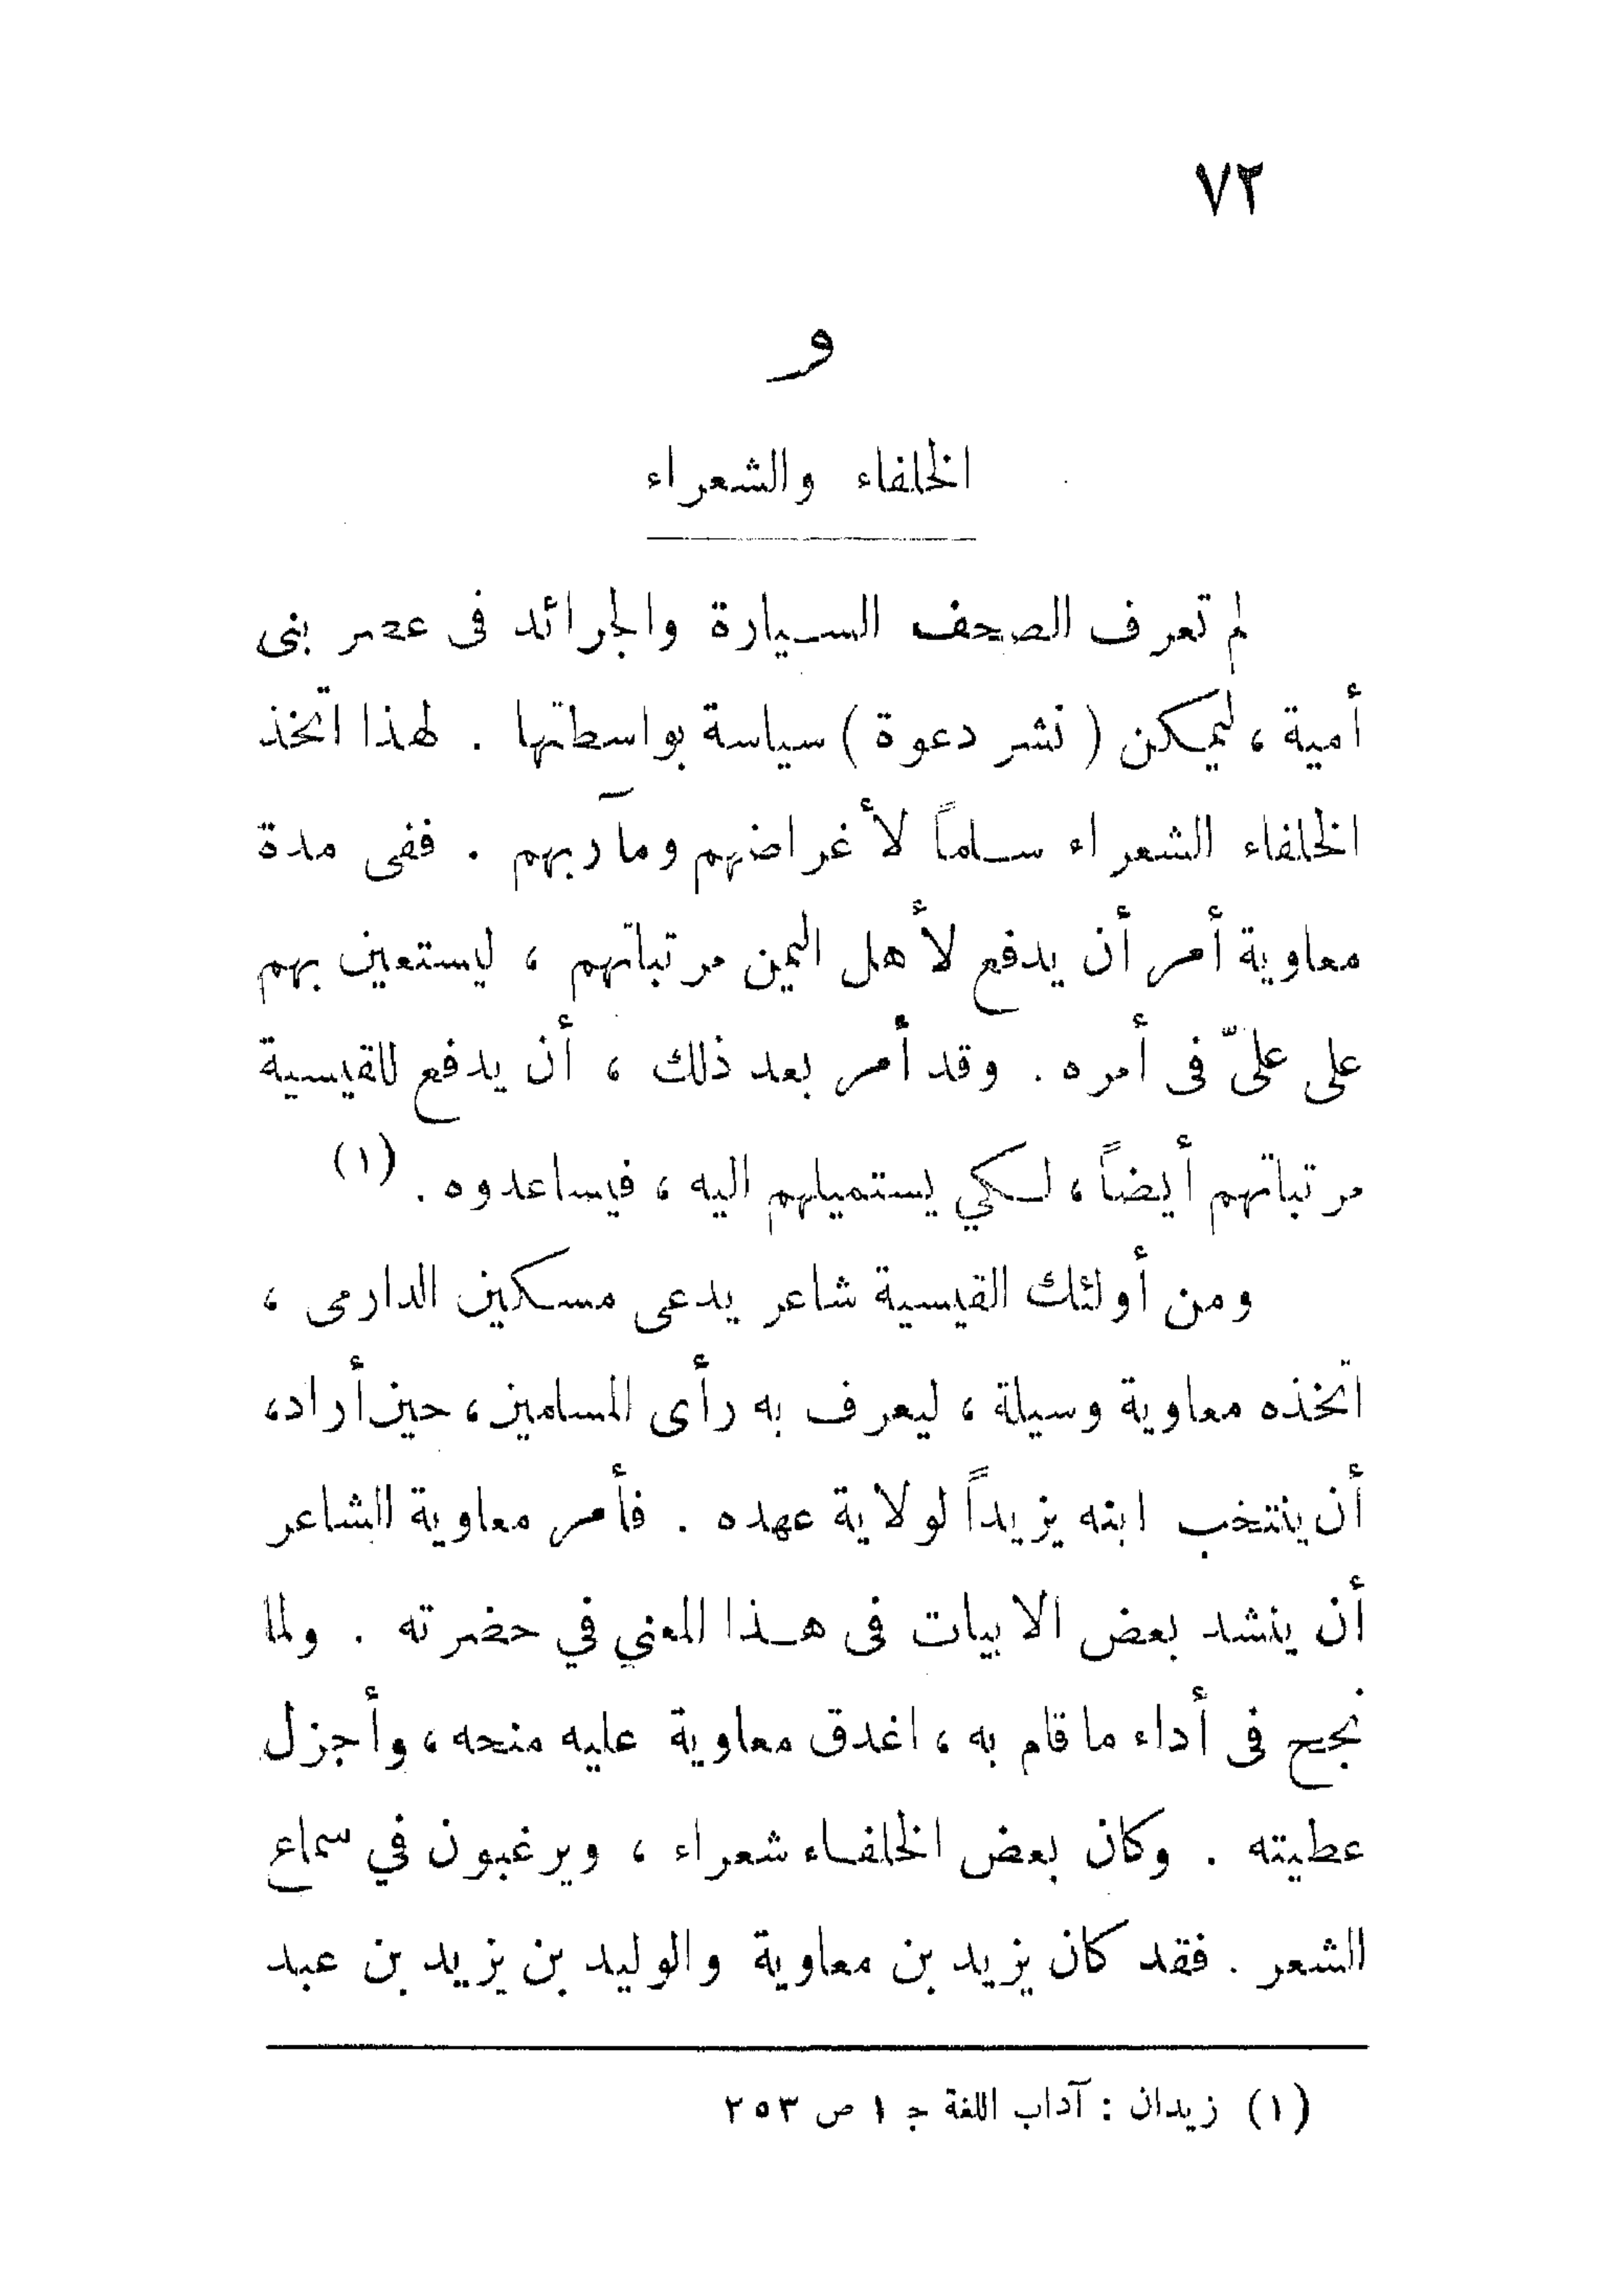 ٧٢
و
الخلفاء والشعراء
لم تعرف الصحف السيارة والجرائد فى عصر بنى
أمية ، ليمكن ( نشر دعوة ) سياسة بواسطتها . لهذا اتخذ
الخلفاء الشعراء سلماً لأغراضهم ومآربهم . ففى مدة
معاوية أمر أن يدفع لأهل اليمن مرتباتهم ، ليستعين بهم
على علىّ فى أمره . وقد أمر بعد ذلك ، أن يدفع للقيسية
مرتباتهم أيضاً ، لكي يستميلهم اليه ، فيساعدوه . (١)
ومن أولئك القيسية شاعر يدعى مسكين الدارمى ،
اتخذه معاوية وسيلة ، ليعرف به رأى المسلمين ، حين أراد ،
أن ينتخب ابنه يزيداً لولاية عهده . فأمر معاوية الشاعر
أن ينشد بعض الابيات فى هذا المعني في حضرته . ولما
نجح فى أداء ما قام به ، اغدق معاوية عليه منحه ، وأجزل
عطيته . وكان بعض الخلفاء شعراء ، ويرغبون في سماع
الشعر . فقد كان يزيد بن معاوية والوليد بن يزيد بن عبد
(١) زيدان : آداب اللغة ج ١ ص ٢٥٣